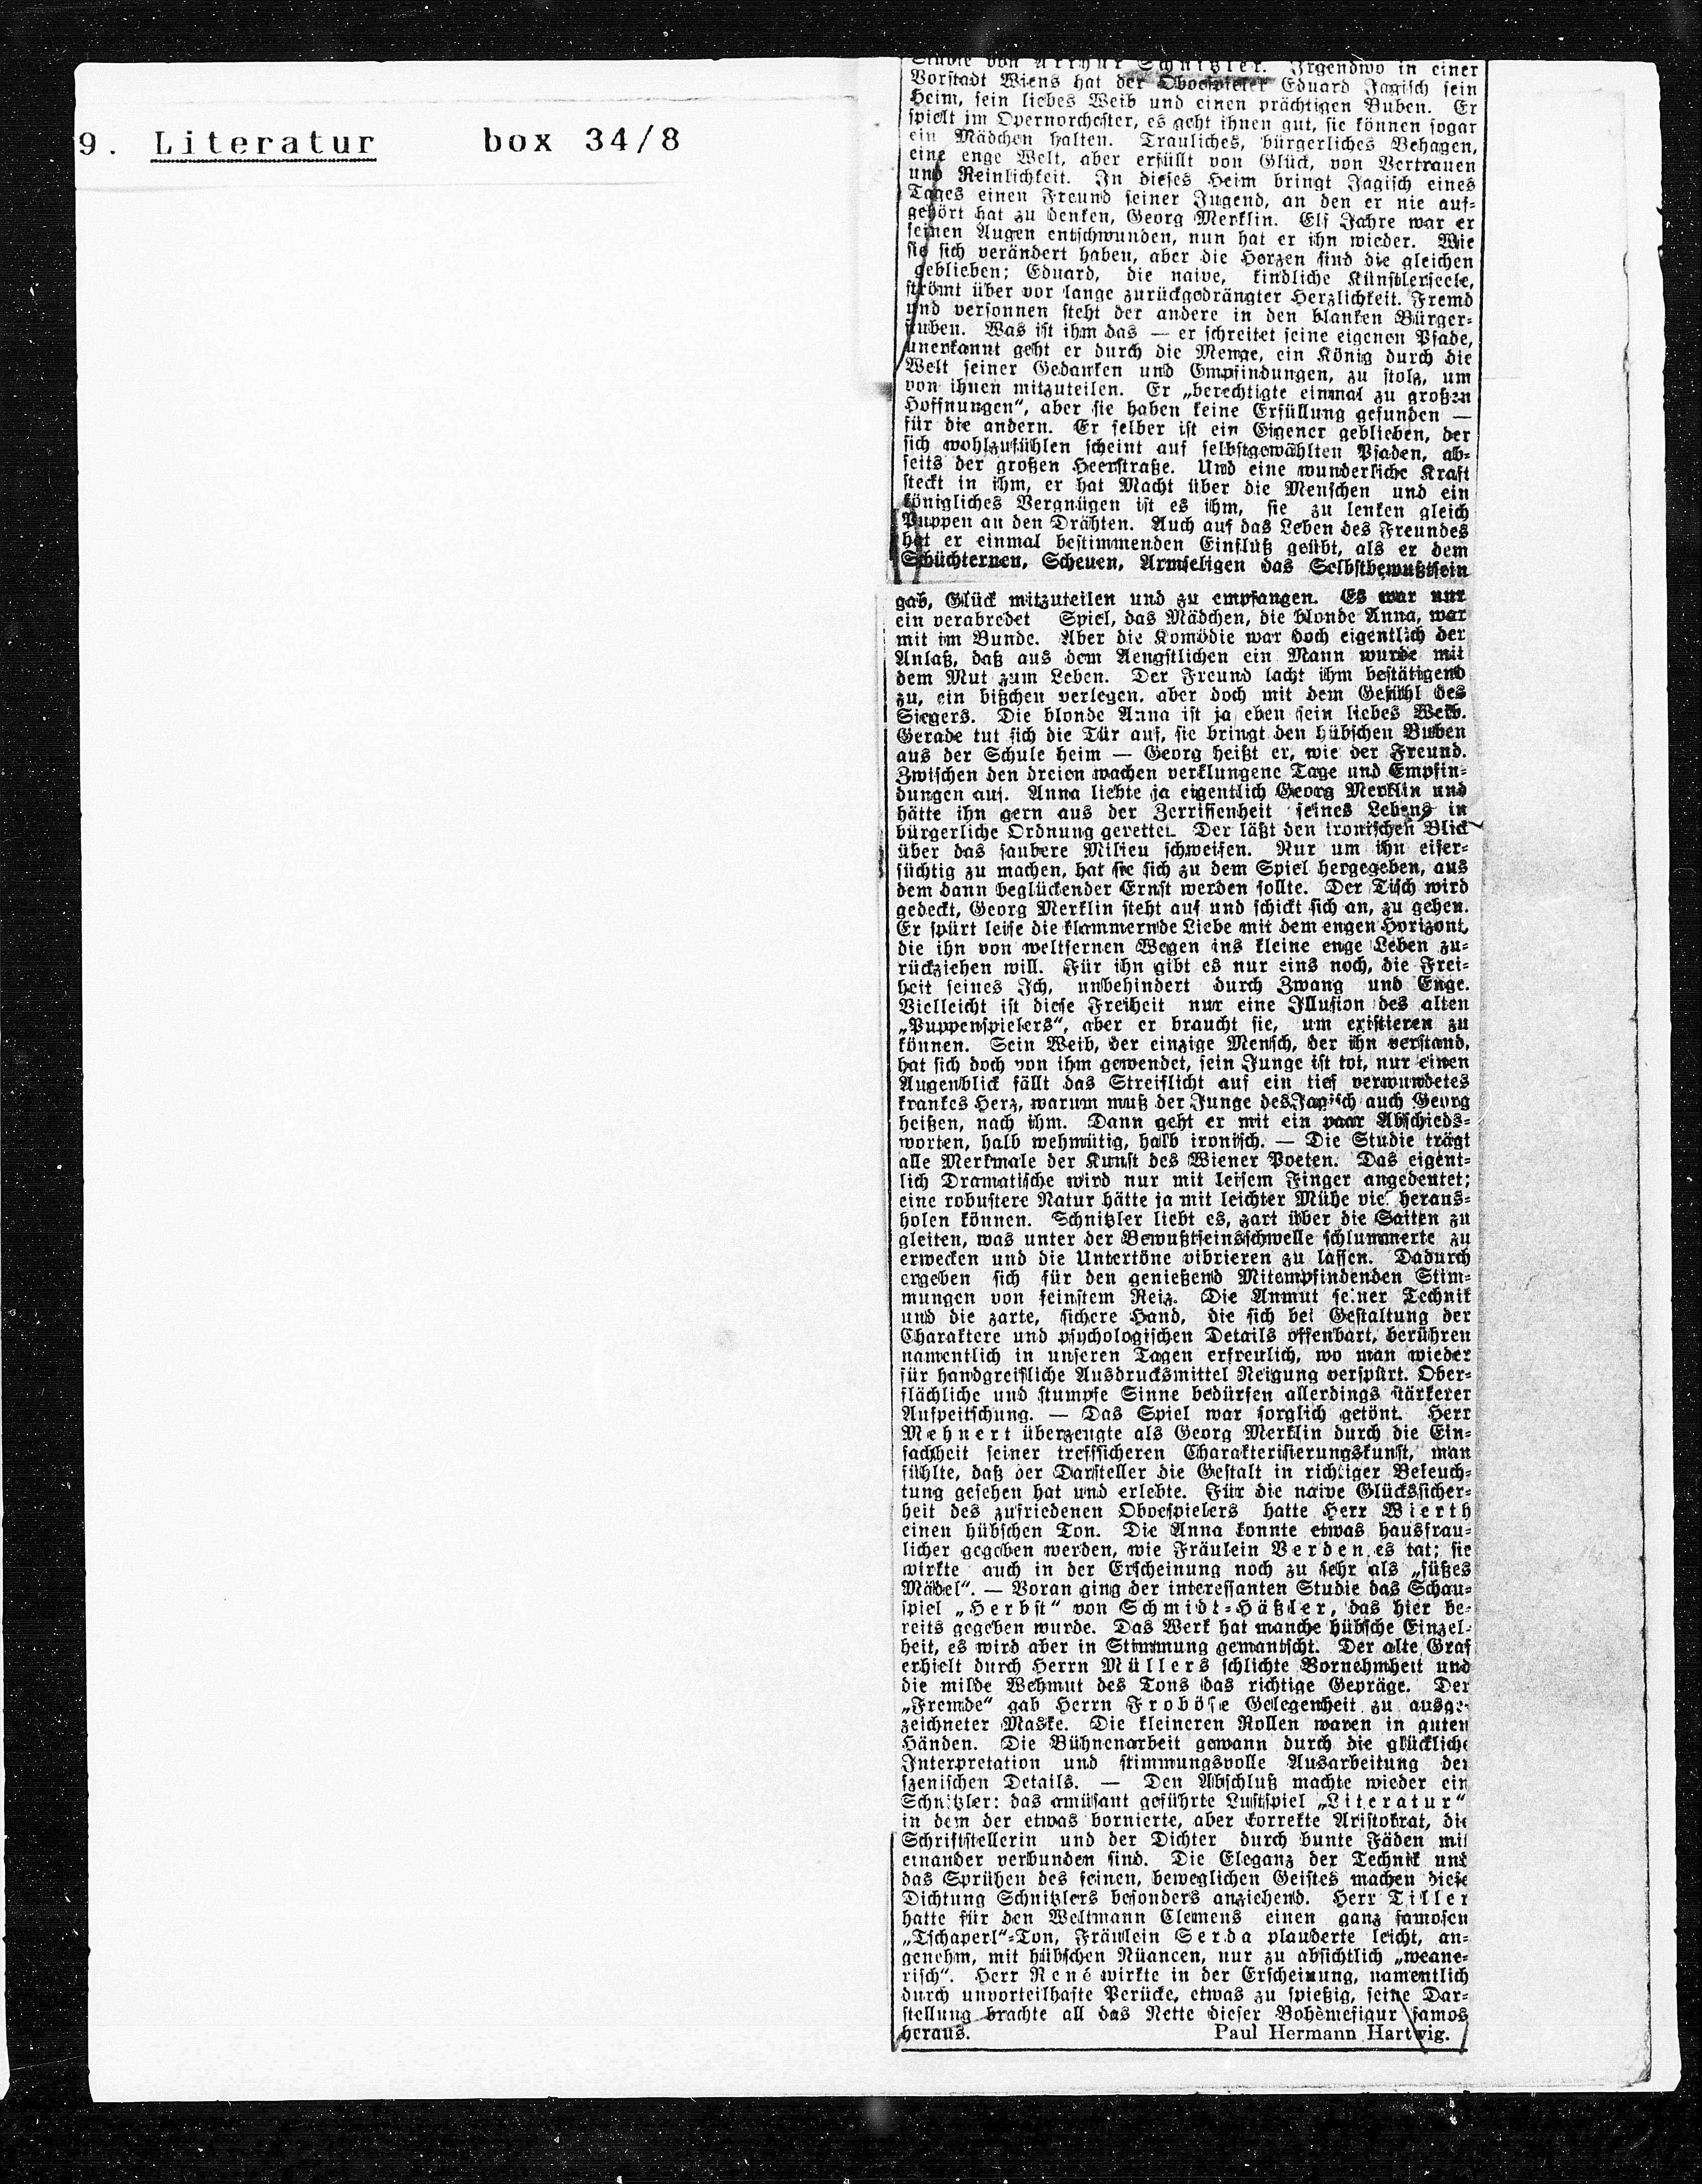 9. Literatur box 34/8
Studie von Arthur Schnitzler. Irgendwo in einer
Vorstadt Wiens hat der Oboespieler Eduard Jagisch sein
Heim, sein liebes Weib und einen prächtigen Buben. Er
spielt im Opernorchester, es geht ihnen gut, sie können sogar
ein Mädchen halten. Trauliches, bürgerliches Behagen,
eine enge Welt, aber erfüllt von Glück, von Vertrauen
und Reinlichkeit. In dieses Heim bringt Jagisch eines
Tages einen Freund seiner Jugend, an den er nie auf-
gehört hat zu denken, Georg Merklin. Elf Jahre war er
seinen Augen entschwunden, nun hat er ihn wieder. Wie
sie sich verändert haben, aber die Herzen sind die gleichen
geblieben; Eduard, die naive, kindliche Künstlerseele,
strömt über vor lange zurückgedrängter Herzlichkeit. Fremd
und versonnen steht der andere in den blanken Bürger-
stuben. Was ist ihm das — er schreitet seine eigenen Pfade,
unerkannt geht er durch die Menge, ein König durch die
Welt seiner Gedanken und Empfindungen, zu stolz, um
von ihnen mitzuteilen. Er „berechtigte einmal zu großen
Hoffnungen“, aber sie haben keine Erfüllung gefunden —
für die andern. Er selber ist ein Eigener geblieben, der
sich wohlzufühlen scheint auf selbstgewählten Pfaden, ab-
seits der großen Heerstraße. Und eine wunderliche Kraft
steckt in ihm, er hat Macht über die Menschen und ein
königliches Vergnügen ist es ihm, sie zu lenken gleich
Puppen an den Drähten. Auch auf das Leben des Freundes
hat er einmal bestimmenden Einfluß geübt, als er dem
Schüchternen, Scheuen, Armseligen das Selbstbewußtsein
gab, Glück mitzuteilen und zu empfangen. Es war nur
ein verabredet Spiel, das Mädchen, die blonde Anna, war
mit im Bunde. Aber die Komödie war doch eigentlich der
Anlaß, daß aus dem Aengstlichen ein Mann wurde mit
dem Mut zum Leben. Der Freund lacht ihm bestätigend
zu, ein bißchen verlegen, aber doch mit dem Gefühl des
Siegers. Die blonde Anna ist ja eben sein liebes Weib.
Gerade tut sich die Tür auf, sie bringt den hübschen Buben
aus der Schule heim — Georg heißt er, wie der Freund.
Zwischen den dreien wachen verklungene Tage und Empfin-
dungen auf. Anna liebte ja eigentlich Georg Merklin und
hätte ihn gern aus der Zerrissenheit seines Lebens in
bürgerliche Ordnung gerettet. Der läßt den ironischen Blick
über das saubere Milieu schweifen. Nur um ihn eifer-
süchtig zu machen, hat sie sich zu dem Spiel hergegeben, aus
dem dann beglückender Ernst werden sollte. Der Tisch wird
gedeckt, Georg Merklin steht auf und schickt sich an, zu gehen.
Er spürt leise die klammernde Liebe mit dem engen Horizont,
die ihn von weltfernen Wegen ins kleine enge Leben zu-
rückziehen will. Für ihn gibt es nur eins noch, die Frei-
heit seines Ich, unbehindert durch Zwang und Enge.
Vielleicht ist diese Freiheit nur eine Illusion des alten
„Puppenspielers“, aber er braucht sie, um existieren zu
können. Sein Weib, der einzige Mensch, der ihn verstand,
hat sich doch von ihm gewendet, sein Junge ist tot, nur einen
Augenblick fällt das Streiflicht auf ein tief verwundetes
krankes Herz, warum muß der Junge des Jagisch auch Georg
heißen, nach ihm. Dann geht er mit ein paar Abschieds-
worten, halb wehmütig, halb ironisch. — Die Studie trägt
alle Merkmale der Kunst des Wiener Poeten. Das eigent-
lich Dramatische wird nur mit leisem Finger angedeutet;
eine robustere Natur hätte ja mit leichter Mühe viel heraus-
holen können. Schnitzler liebt es, zart über die Saiten zu
gleiten, was unter der Bewußtseinsschwelle schlummerte zu
erwecken und die Untertöne vibrieren zu lassen. Dadurch
ergeben sich für den genießend Mitempfindenden Stim-
mungen von feinstem Reiz. Die Anmut seiner Technik
und die zarte, sichere Hand, die sich bei Gestaltung der
Charaktere und psychologischen Details offenbart, berühren
namentlich in unseren Tagen erfreulich, wo man wieder
für handgreifliche Ausdrucksmittel Neigung verspürt. Ober-
flächliche und stumpfe Sinne bedürfen allerdings stärkerer
Aufpeitschung. — Das Spiel war sorglich getönt. Herr
Mehnert überzeugte als Georg Merklin durch die Ein-
fachheit seiner treffsicheren Charakterisierungskunst, man
fühlte, daß der Darsteller die Gestalt in richtiger Beleuch-
tung gesehen hat und erlebte. Für die naive Glückssicher-
heit des zufriedenen Oboespielers hatte Herr Wierth
einen hübschen Ton. Die Anna konnte etwas hausfrau-
licher gegeben werden, wie Fräulein Verden es tat; sie
wirkte auch in der Erscheinung noch zu sehr als „süßes
Mädel“. — Voran ging der interessanten Studie das Schau-
spiel „Herbst“ von Schmidt-Häßler, das hier be-
reits gegeben wurde. Das Werk hat manche hübsche Einzel-
heit, es wird aber in Stimmung gemantscht. Der alte Graf
erhielt durch Herrn Müllers schlichte Vornehmheit und
die milde Wehmut des Tons das richtige Gepräge. Der
„Fremde“ gab Herrn Froböse Gelegenheit zu ausge-
zeichneter Maske. Die kleineren Rollen waren in guten
Händen. Die Bühnenarbeit gewann durch die glückliche
Interpretation und stimmungsvolle Ausarbeitung der
szenischen Details. — Den Abschluß machte wieder ein
Schnitzler: das amüsant geführte Lustspiel „Literatur“
in dem der etwas bornierte, aber korrekte Aristokrat, die
Schriftstellerin und der Dichter durch bunte Fäden mit
einander verbunden sind. Die Eleganz der Technik und
das Sprühen des feinen, beweglichen Geistes machen diese
Dichtung Schnitzlers besonders anziehend. Herr Tiller
hatte für den Weltmann Clemens einen ganz famosen
„Tschaperl“-Ton, Fräulein Serda plauderte leicht, an-
genehm, mit hübschen Nüancen, nur zu absichtlich „weane-
risch“. Herr René wirkte in der Erscheinung, namentlich
durch unvorteilhafte Perücke, etwas zu spießig, seine Dar-
stellung brachte all das Nette dieser Bohèmefigur famos
heraus. Paul Hermann Hartwig.